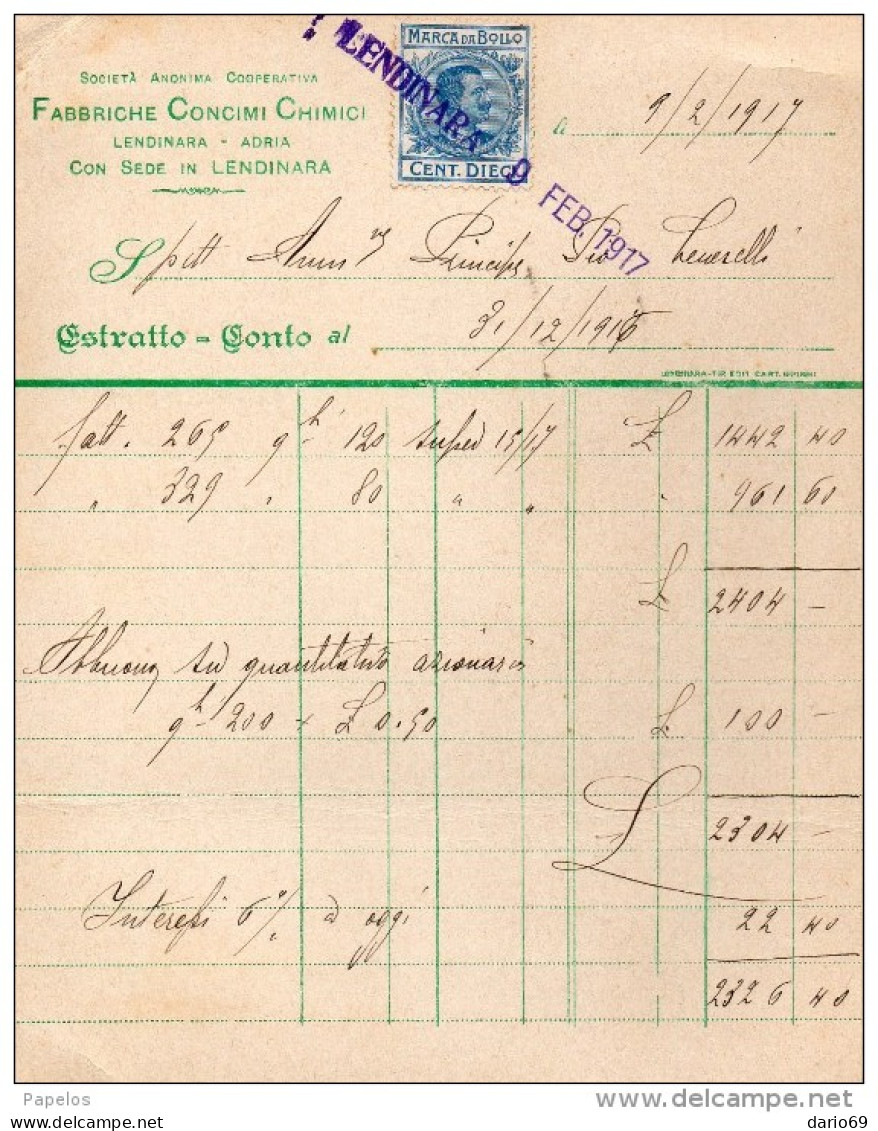 SOCIETÀ ANONIMA COOPERATIVA
FABBRICHE CONCIMI CHIMICI
LENDINARA - ADRIA
CON SEDE IN LENDINARA
MARCA DA BOLLO
CENT. DIECI
LENDINARA 9 FEB. 1917
a 9/2/1917
Spett Principe Pio
Estratto = Conto al 31/12/1916
fatt. 265 qli 120 15/17 £ 1442 40
" 329 " 80 " " " 961 60
£ 2404 -
Abbuono su quantitativo azionario
ql 200 x £ 0.50 £ 100 -
£ 2304 -
Interessi 6% a oggi 22 40
2326 40
Papelos
www.delcampe.net
dario69